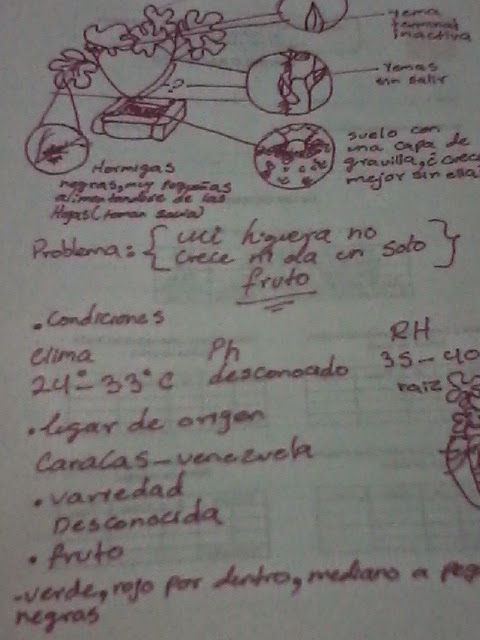 yema
terminal
inactiva
yemas
sin salir
?
suelo con
una capa de
gravilla, ¿ crece
mejor sin ella
Hormigas
negras, muy pequeñas
alimentandose de las
Hojas (toman savia)
Problema: { mi higuera no
crece ni da un solo }
fruto
. Condiciones
clima Ph RH
24° - 33° C desconoado 35 - 40
raiz
. lugar de origen
Caracas - venezuela
. variedad
Desconocida
. fruto
- verde, rojo por dentro, mediano a peq
negras